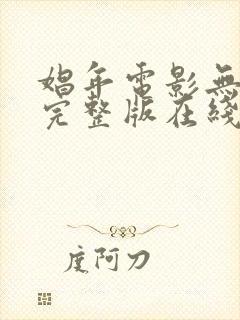 娼年電影無
完整版在綫
度阿刀